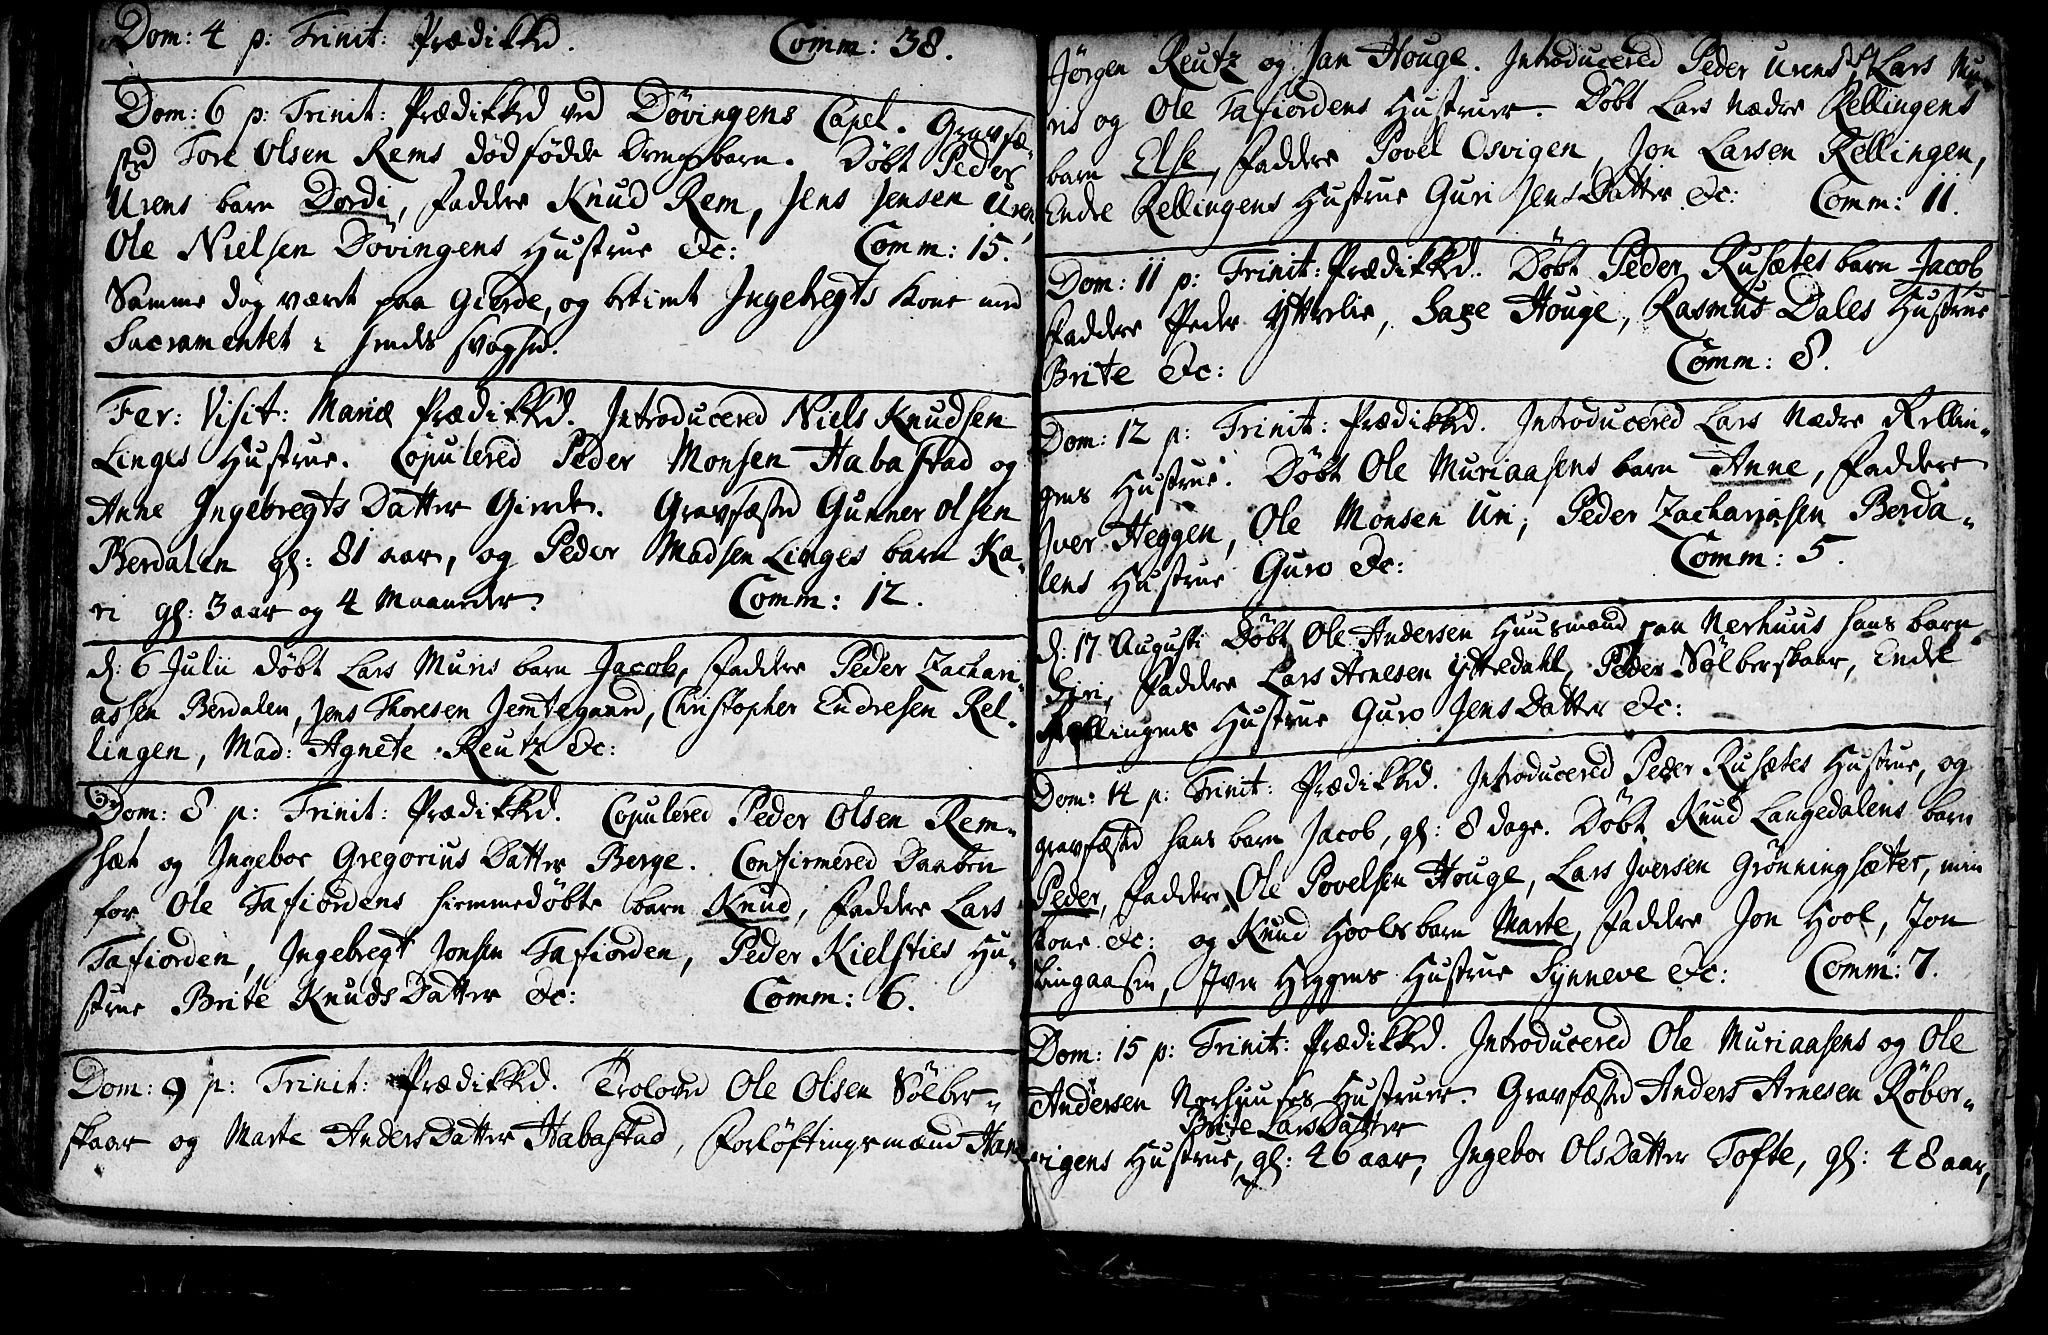 Dom: 4 p: Trinit: Prædikked. Comm: 38.
Dom: 6 p: Trinit: Prædikked ved Døvingens Capel. Gravfæ-
sted Tore Olsen Rems dødfødde drengebarn. Døbt Peder
Urens barn Dordi, Faddere Knud Rem, Jens Jensen Uren,
Ole Nielsen Døvingens Hustrue &c: Comm: 15.
Samme dag været paa Gierde, og betient Ingebregts Kone med
Sacramentet i hendes svaghed.
Fer: Visit: Mariæ Prædikked. Introducered Niels Knudsen
Linges Hustrue. Copulered Peder Monsen Habastad og
Anne Ingebregts Datter Gierde. Gravfæsted Gunner Olsen
Berdalen gl: 81 aar, og Peder Madsen Linges barn Ka-
ri gl: 3 aar og 4 Maaneder. Comm: 12.
d: 6 Julii døbt Lars Muris barn Jacob, Faddere Peder Zachari-
assen Berdalen, Jens Thoresen Jemtegaard, Christopher Endresen Rel-
lingen, Mad: Agnete Reutz &c:
Dom: 8 p: Trinit: Prædikked. Copulered Peder Olsen Rem-
sæt og Ingebor Gregorius Datter Berge. Confirmered Daaben
for Ole Tafiordens hiemmedøbte barn Knud, Faddere Lars
Tafiorden, Ingebregt Jonsen Tafiorden, Peder Kielsties Hu-
strue Brite Knuds Datter &c: Comm: 6.
Dom: 9 p: Trinit: Prædikked. Troloved Ole Olsen Sølber-
skaar og Marte Anders Datter Habastad, Forløftingsmænd Hans
Jørgen Reutz og Jan Houge. Introducered Peder Urens, Lars Mu-
ris og Ole Tafiordens Hustruer. Døbt Lars Nedre Rellingens
barn Else, Faddere Povel Osvigen, Jon Larsen Rellingen,
Endre Rellingens Hustrue Guri Jens Datter &c: Comm: 11.
Dom: 11 p: Trinit: Prædikked. Døbt Peder Rusætes barn Jacob
Faddere Peder Ytterlie, Saxe Houge, Rasmus Dales Hustrue
Brite &c: Comm: 8.
Dom: 12 p: Trinit: Prædikked. Introducered Lars Nedre Rellin-
gens Hustrue. Døbt Ole Muriaasens barn Anne, Faddere
Iver Heggen, Ole Monsen Uri, Peder Zachariasen Berda-
lens Hustrue Guro &c: Comm: 5.
d: 17 Augusti Døbt Ole Andersen Huusmand paa Nerhuus hans barn
Siri, Faddere Lars Arnesen Yttredahl, Peder Sølberskaar, Endre
Rellingens Hustrue Guro Jens Datter &c:
Dom: 14 p: Trinit: Prædikked. Introducered Peder Rusætes Hustrue, og
gravfæsted hans barn Jacob, gl: 8 dage. Døbt Knud Langedalens barn
Peder, Faddere Ole Povelsen Houge, Lars Iversen Grønningsæter, min
kone &c: og Knud Hools barn Marte, Faddere Jon Hool, Jon
Lingaasen, Iver Heggens Hustrue Synneve &c: Comm: 7.
Dom: 15 p: Trinit: Prædikked. Introducered Ole Muriaasens og Ole
Andersen Nerhuuses Hustruer. Gravfæsted Anders Arnesen Røbor-
Brite Lars Datter
vigens Hustrue, gl: 46 aar, Ingebor Ols Datter Tofte, gl: 48 aar,